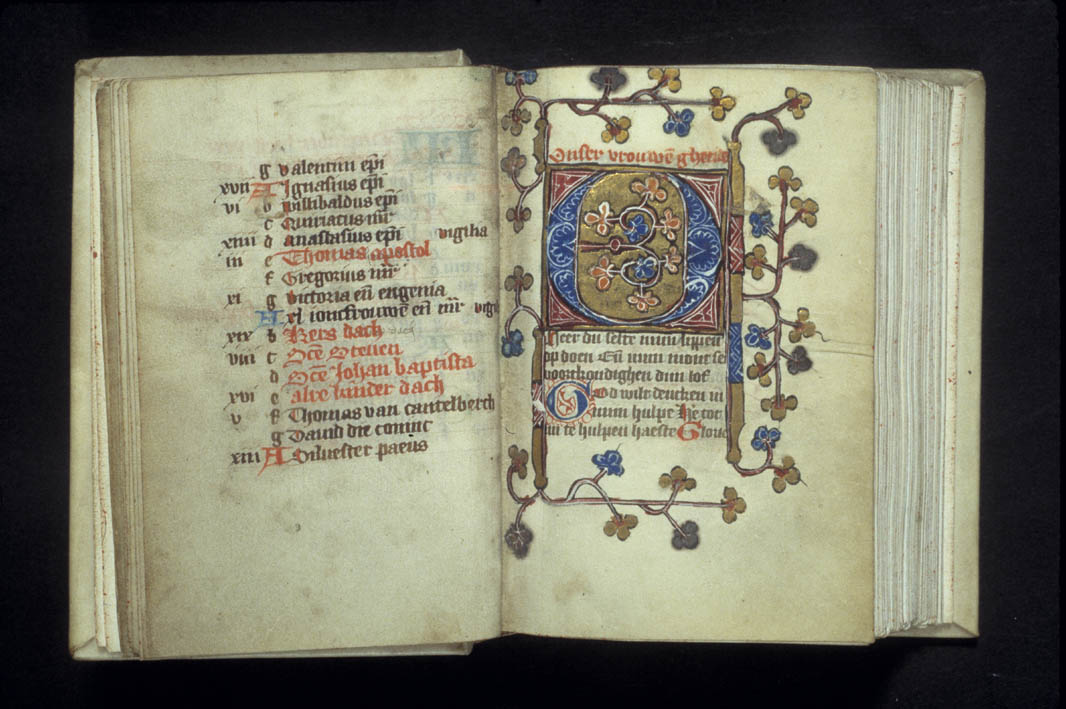 g Valentini epi
xvii A Ignasius epi
vi b Willibaldus epi
c Quiriatus mr
xiiii d Anastasius epi vigilia
iii e Thomas apostol
f Gregorius mr
xi g Victoria en eugenia
A xl ioncfrouwen en mr vigi
xix b Kers dach dach
viii c Sce Steven
d Sce Johan baptista
xvi e alre kinder dach
v f Thomas van cantelberch
g David die coninc
xiii A Silvester paeus
Onser vrouwen ghetide
Heer du selte min lippen
op doen En min mont sel
voortkondighen dijn lof
God wilt dencken in
mijn hulpe Here tot
mi te hulpen haeste Glorie